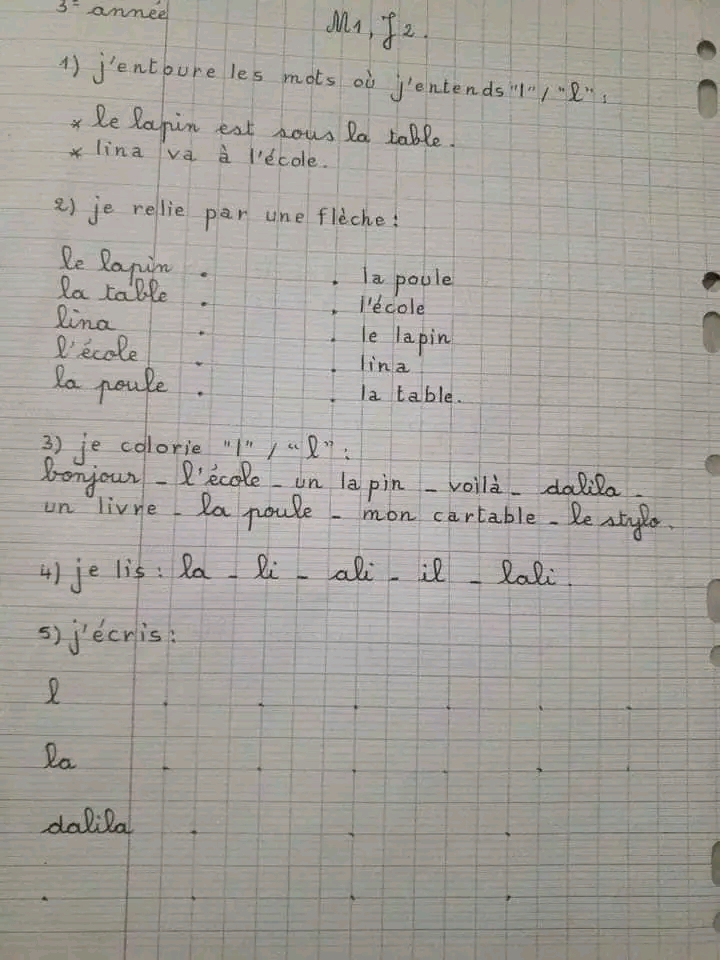 3e année
M1, J2.
1) j'entoure les mots où j'entends "l" / "l" :
* le lapin est sous la table.
* lina va à l'école.
2) je relie par une flèche :
le lapin . . la poule
la table . . l'école
lina . . le lapin
l'école . . lina
la poule . . la table.
3) je colorie "l" / "l" :
bonjour - l'école - un lapin - voilà - dalila -
un livre - la poule - mon cartable - le stylo.
4) je lis : la - li - ali - il - lali.
5) j'écris :
l . . . . . .
la . . . . . .
dalila . . .
. . . .